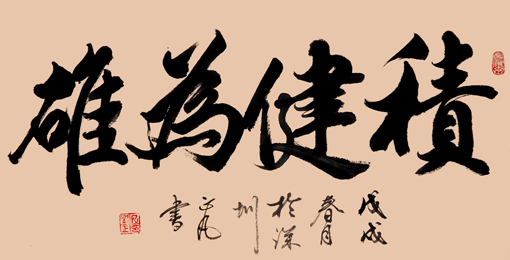 積健為雄
戊戌
春月
於深
圳
書